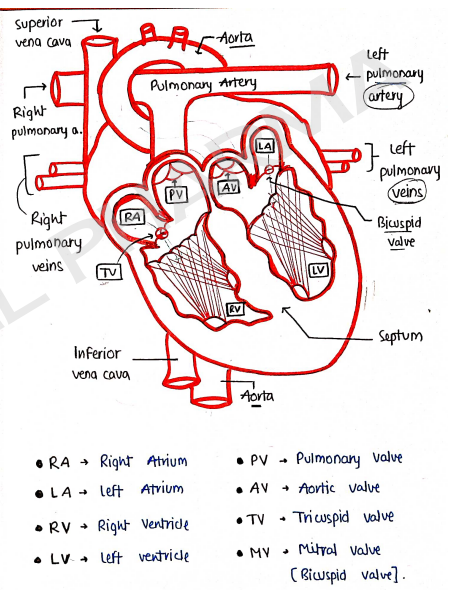 superior
vena cava
Aorta
Left
pulmonary
artery
Pulmonary Artery
Right
pulmonary a.
LA
PV
AV
Left
pulmonary
veins
RA
Right
pulmonary
veins
Bicuspid
valve
TV
LV
RV
Septum
Inferior
vena cava
Aorta
• RA → Right Atrium
• LA → Left Atrium
• RV → Right Ventricle
• LV → Left ventricle
• PV → Pulmonary valve
• AV → Aortic valve
• TV → Tricuspid valve
• MV → Mitral valve
[Bicuspid valve].